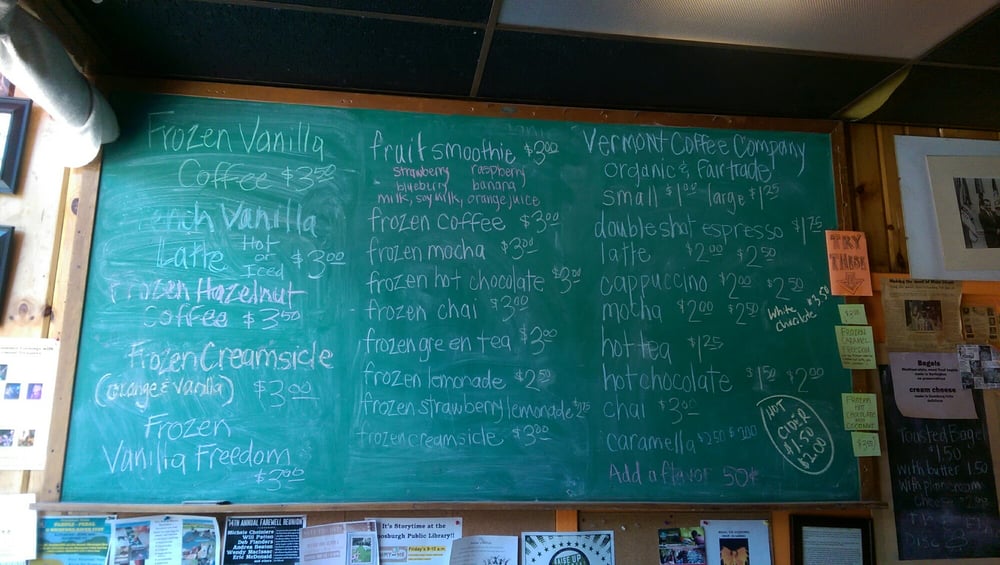 Frozen Vanilla
Coffee $3.50
French Vanilla
Latte Hot or Iced $3.00
Frozen Hazelnut
Coffee $3.50
Frozen Creamsicle
(orange & vanilla) $3.00
Frozen
Vanilla Freedom
$3.00
fruit smoothie $3.00
strawberry raspberry
blueberry banana
milk, soy milk, orange juice
frozen coffee $3.00
frozen mocha $3.00
frozen hot chocolate $3.00
frozen chai $3.00
frozen green tea $3.00
frozen lemonade $2.50
frozen strawberry lemonade
frozen creamsicle $3.00
Vermont Coffee Company
organic & Fair trade
small $1.00 large $1.25
double shot espresso $1.75
latte $2.00 $2.50
cappuccino $2.00 $2.50
mocha $2.00 $2.50
white chocolate $3.50
hot tea $1.25
hot chocolate $1.50 $2.00
chai $3.00
caramella $2.50
Add a flavor 50¢
HOT
CIDER
$1.50
$2.00
TRY
THESE
FROZEN
CARAMEL
FREEDOM
FROZEN
HOT
CHOCOLATE
COCONUT
Bagels
cream cheese
Toasted Bagel
1.50
with butter 1.50
14TH ANNUAL FAREWELL REUNION
Will Patton
Deb Flanders
Andrea Beaton
Wendy MacIsaac
Eric McDonald
It's Storytime at the
Public Library!!